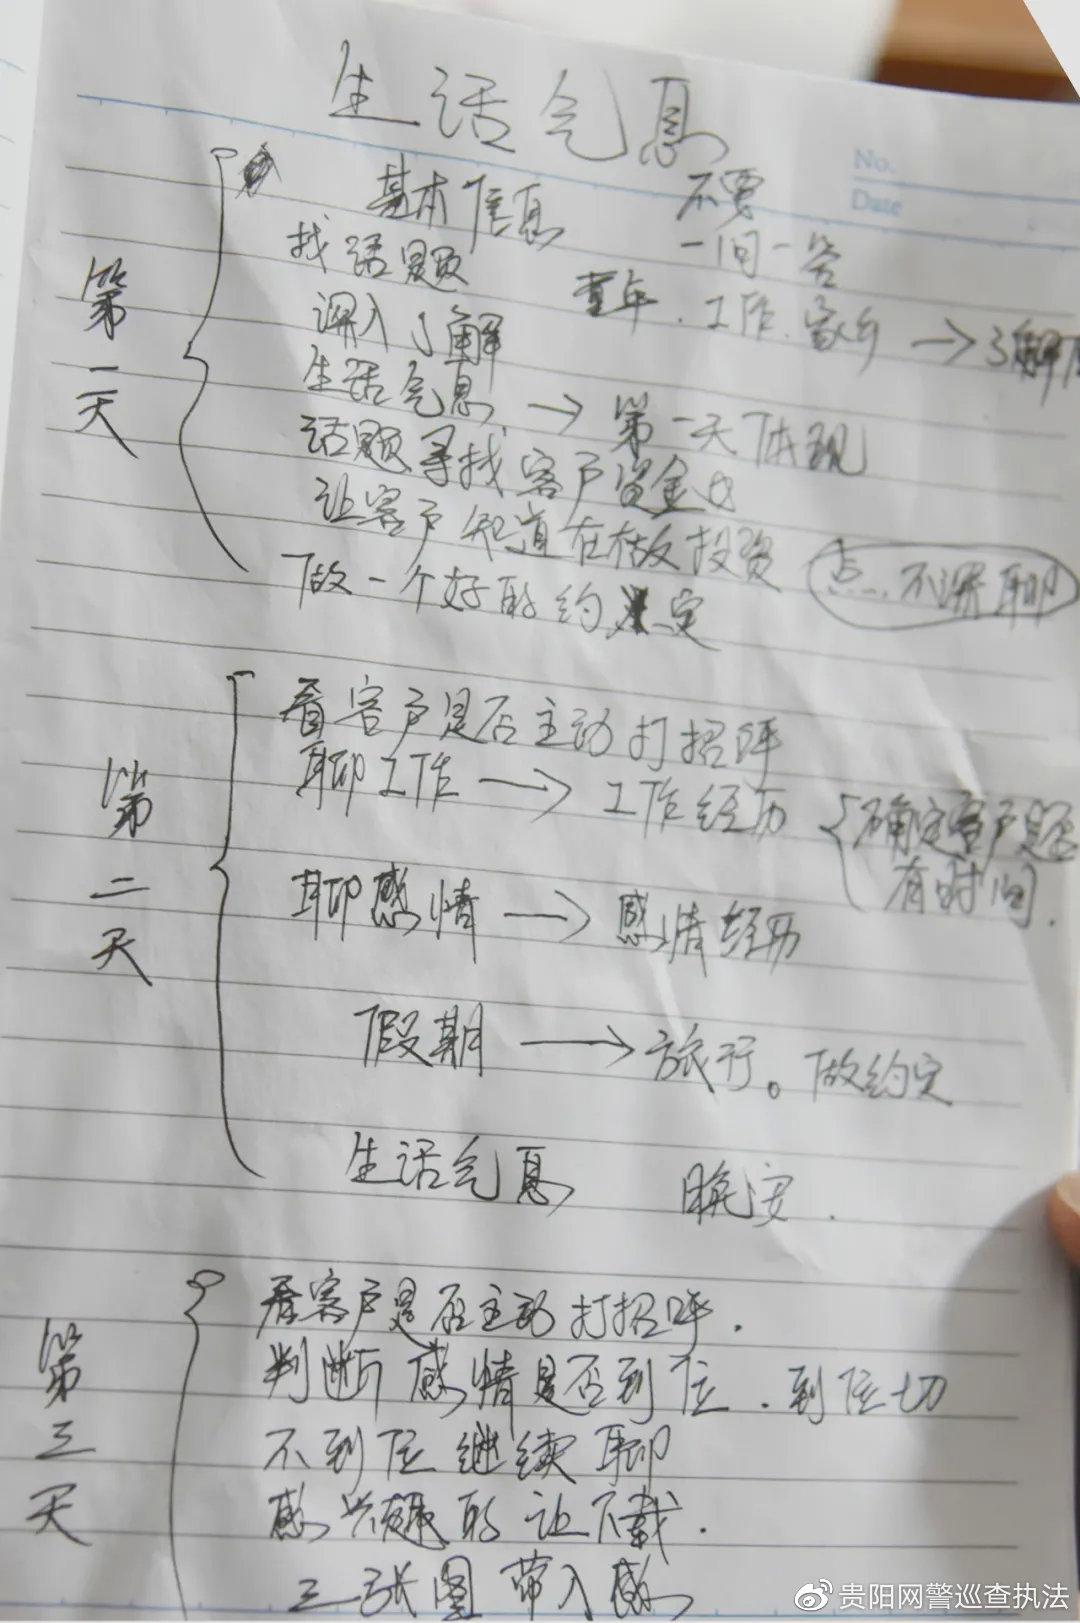 生话气息
No.
Date
第一天
基本信息 不要
找话题 一问一答
童年.工作.家乡 → 了解
深入了解
生话气息 → 第一天体现
话题寻找客户资金
让客户知道在做投资
点... 不深聊
做一个好的约定
第二天
看客户是否主动打招呼
聊工作 → 工作经历
确定客户是否
有时间.
聊感情 → 感情经历
假期 → 旅行。做约定
生话气息 晚安.
第三天
看客户是否主动打招呼.
判断感情是否到位.到位切
不到位继续聊
感兴趣的让下载.
三张图带入感
@贵阳网警巡查执法